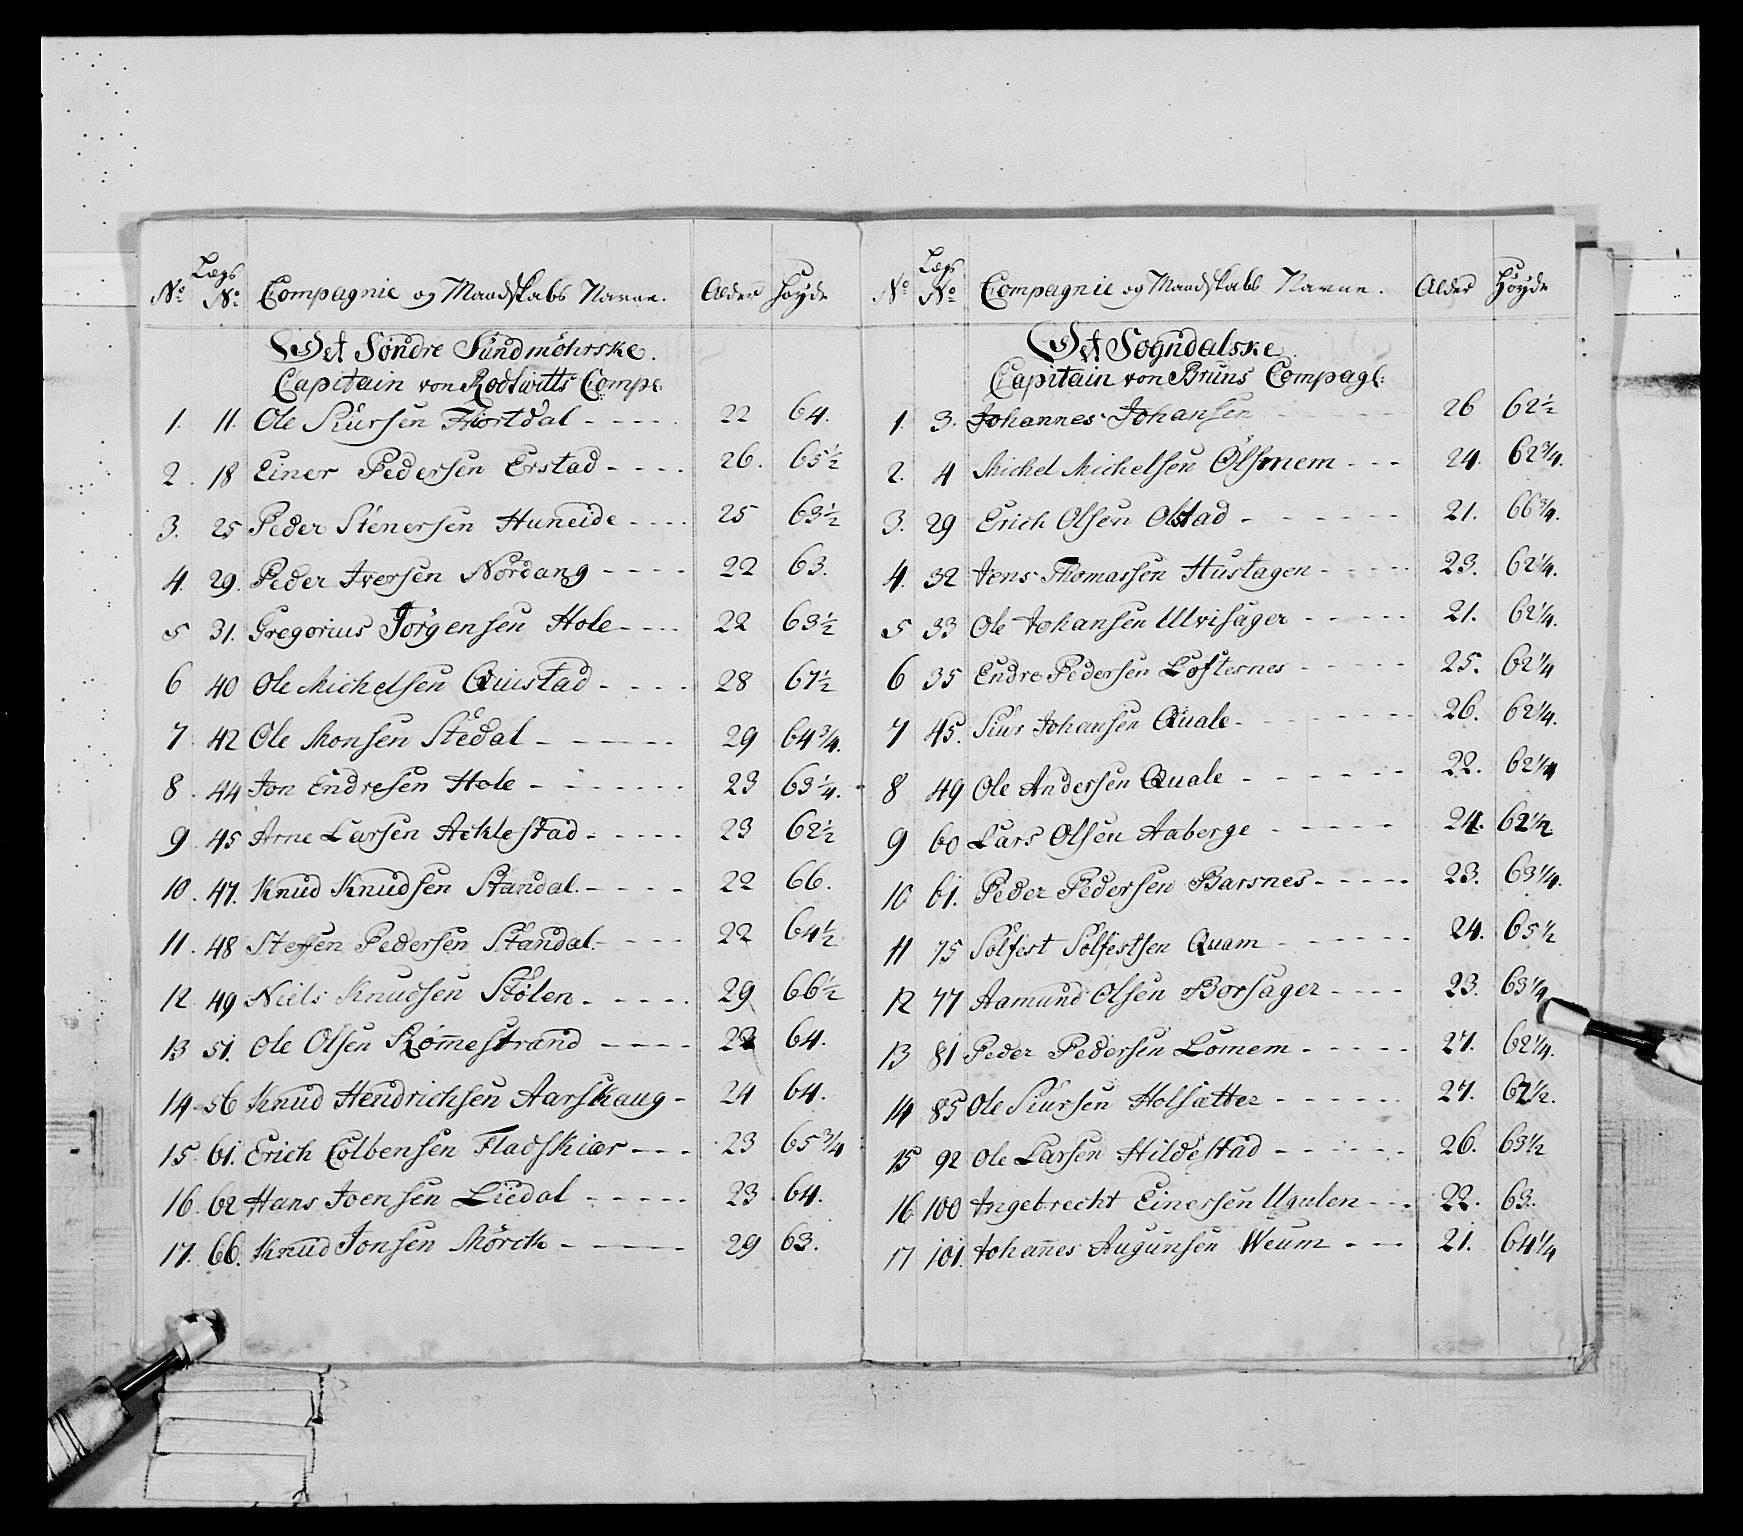 No Lægs No Compagnie og Mandskabs Navne. Alder Høyde
Det Søndre Sundmöhrske.
Capitain von Rodtwitts Comp:
1. 11. Ole Siursen Fiortdal 22 64.
2. 18 Einer Pedersen Erstad 26. 65½
3. 25 Peder Stenersen Huneide 25 63½
4. 29. Peder Iversen Nordang 22 63.
5 31. Gregorius Jörgensen Hole 22 63½
6 40 Ole Michelsen Quistad 28 67½
7 42 Ole Monsen Stedal 29 64¾.
8. 44 Jon Endresen Hole 23 63¼.
9. 45 Arne Larsen Acklestad 23 62½
10. 47. Knud Knudsen Standal. 22 66.
11. 48 Steffen Pedersen Standal. 22 64½
12. 49 Niels Knudsen Stølen. 29 66½
13 51. Ole Olsen Römmestrand 64.
14 56 Knud Hendrichsen Aarskaug 24 64.
15. 61. Erich Colbensen Fladskiær 23 65¾
16. 62 Hans Joensen Liedal 23 64.
17. 66. Knud Jonsen Mörck 29 63.
No Lægs No Compagnie og Mandskabs Navne. Alder Høyde
Det Sogndalske.
Capitain von Bruns Compagl:
1. 3. Johannes Johansen 26 62½
2. 4 Michel Michelsen Ölsmem 24. 62¾.
3. 29 Erich Olsen Olstad 21. 66¾.
4. 32 Jens Thomassen Hustagen 23. 62¼.
5. 33 Ole Johansen Ulvisager 21. 62¼.
6 35 Endre Pedersen Loftesnes 25. 62¼
7 45. Siur Johansen Quale 26. 62¼.
8 49 Ole Andersen Quale 22. 62¼
9 60 Lars Olsen Aaberge 24. 62½
10 61. Peder Pedersen Barsnes 23. 63¼.
11 75 Solfest Solfestsen Quam 24. 65½
12 77 Aamund Olsen Borsager 23. 63¼
13 81 Peder Pedersen Lomem 27. 62¼.
14 85 Ole Siursen Holsætter 27. 62½.
15 92 Ole Larsen Hildestad 26. 63½
16 100 Ingebrecht Einersen Ugulen 22. 63.
17 101. Johannes Augunsen Weum 21. 64¼